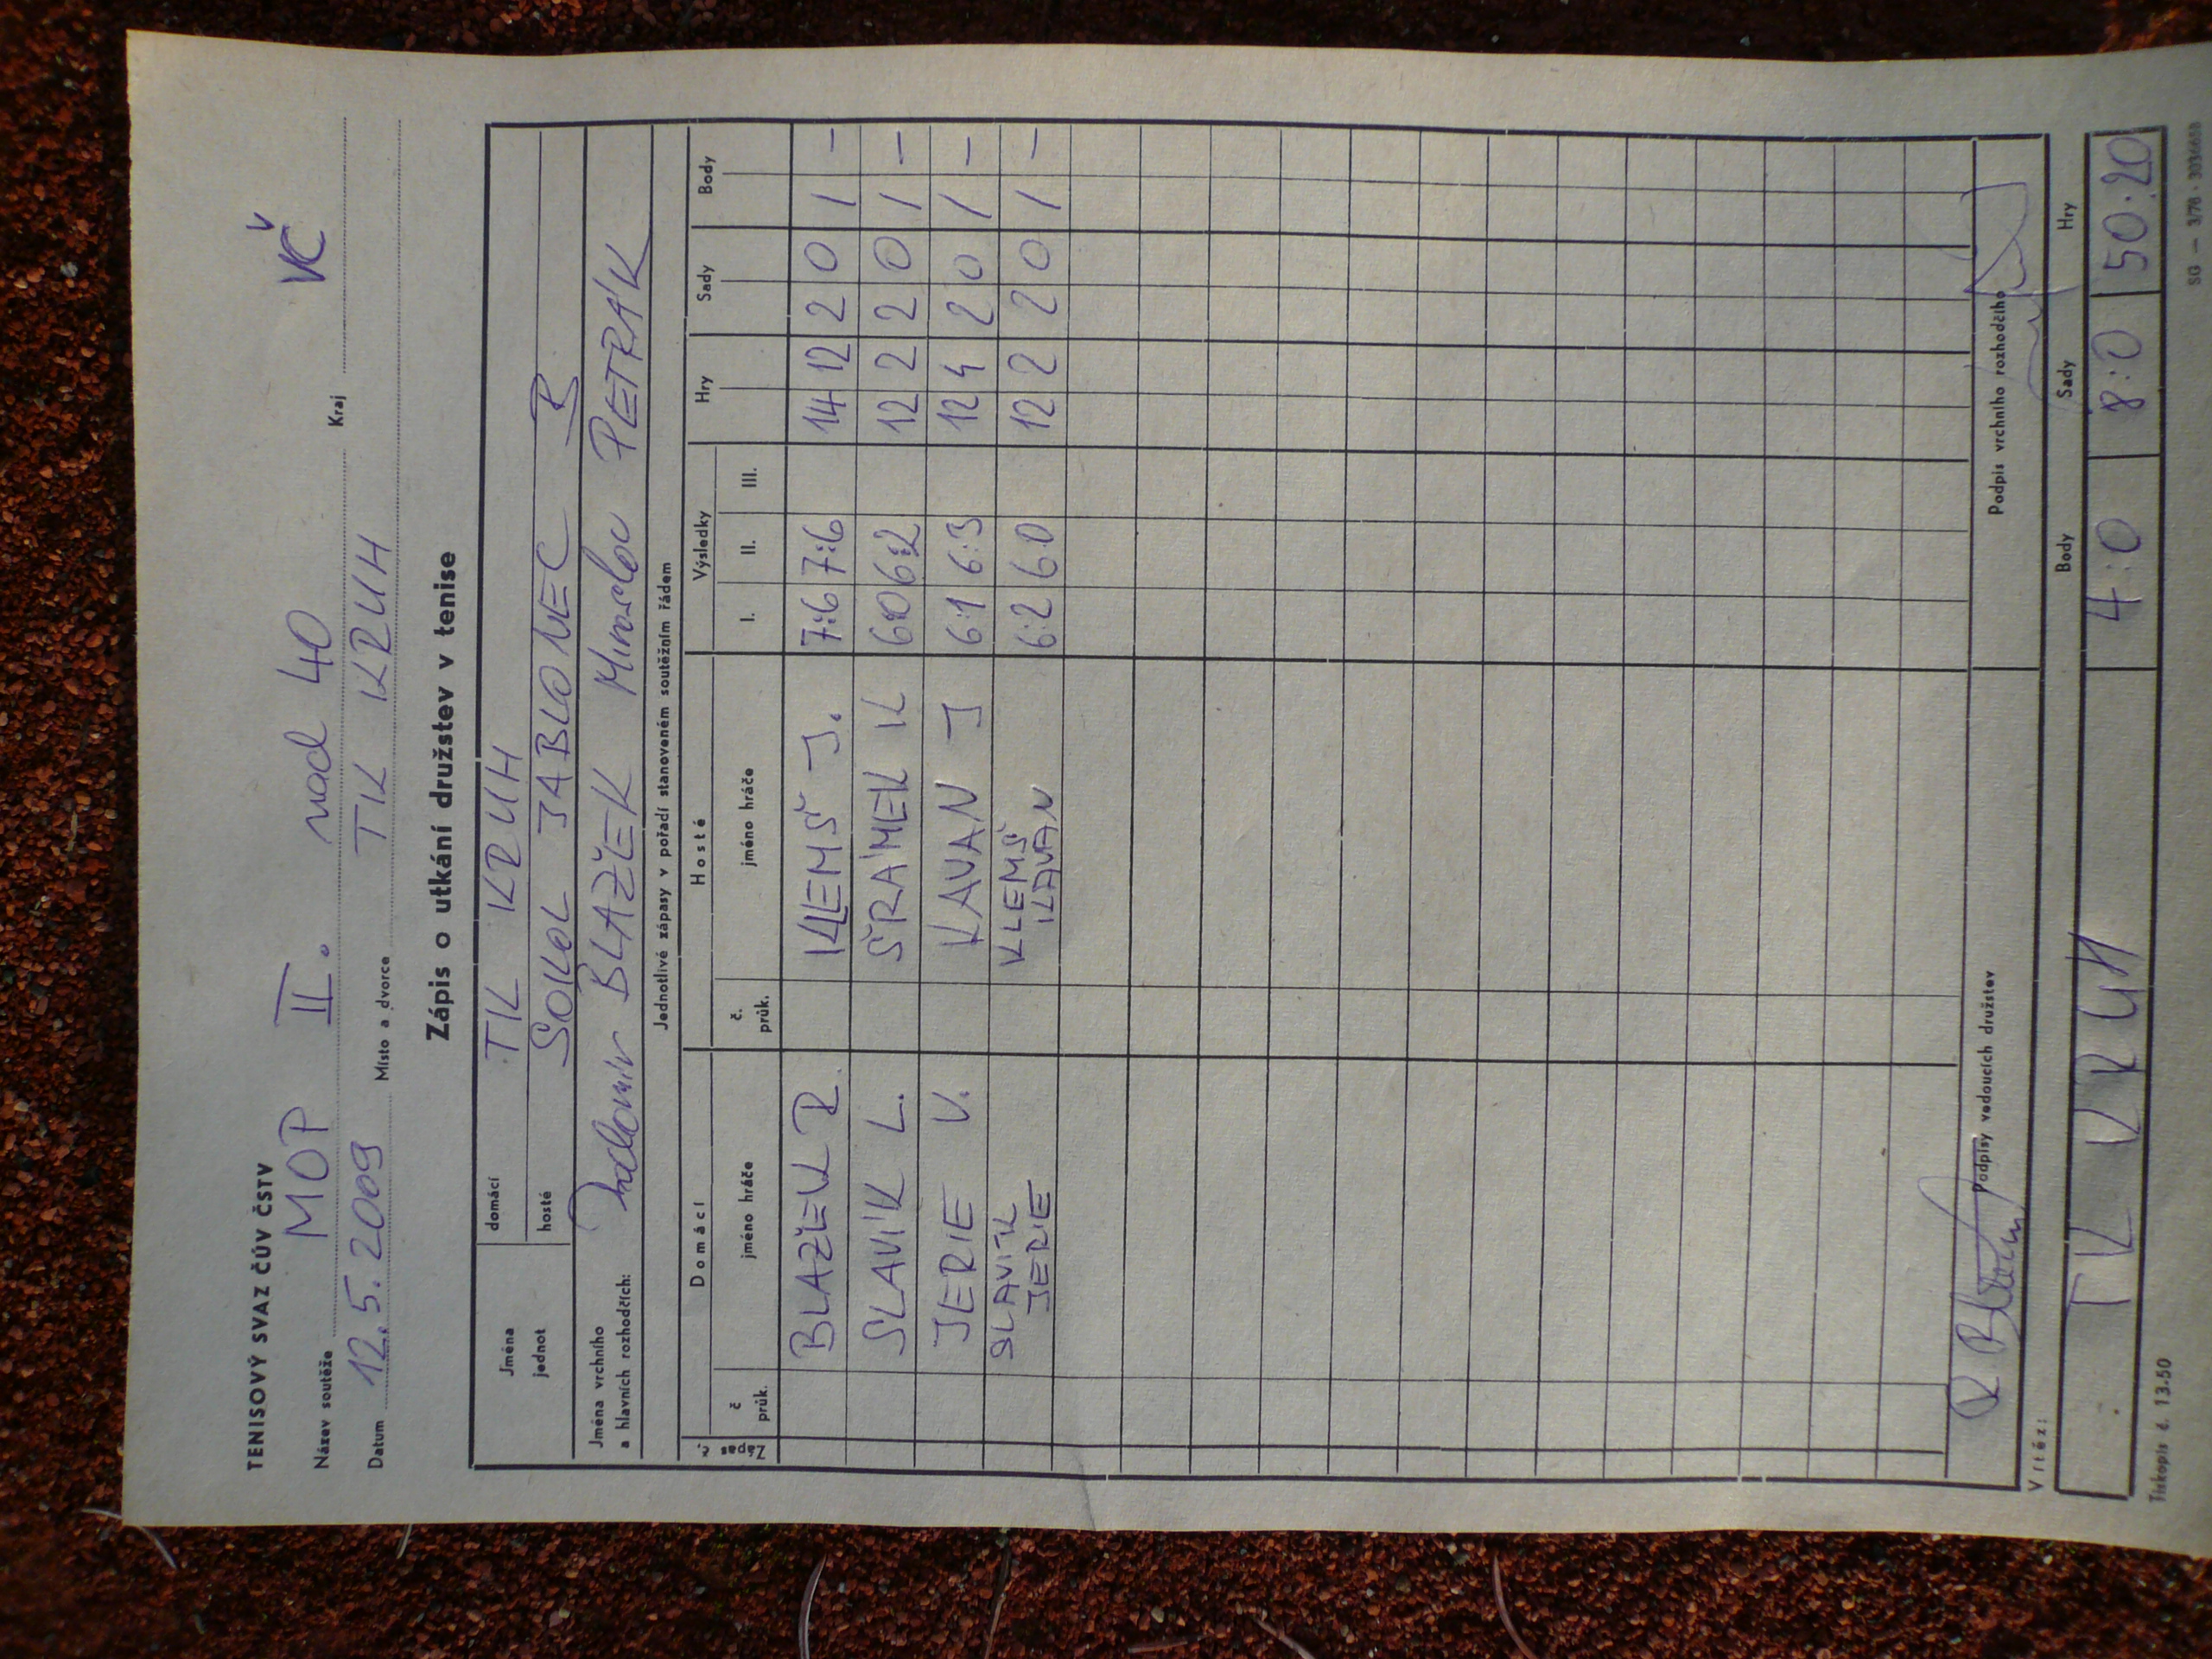 TENISOVÝ SVAZ ČÚV ČSTV
Název soutěže MOP II. nad 40 Kraj VČ
Datum 12.5.2009 Místo a dvorce TK KRUH
Zápis o utkání družstev v tenise
Jména jednot domácí TK KRUH
hosté SOKOL JABLONEC B
Jména vrchního
a hlavních rozhodčích: BLAŽEK Miroslav PETRÁK
Jednotlivé zápasy v pořadí stanoveném soutěžním řádem
Zápas č. Domácí Hosté Výsledky Hry Sady Body
č průk. jméno hráče č. průk. jméno hráče I. II. III.
BLAŽEK R. KLEMŠ J. 7:6 7:6 14 12 2 0 1 -
SLAVÍK L. ŠRÁMEK K 6:0 6:2 12 2 2 0 1 -
JERIE V. KAVAN J 6:1 6:3 12 4 2 0 1 -
SLAVÍK KLEMŠ 6:2 6:0 12 2 2 0 1 -
JERIE KAVAN
Podpisy vedoucích družstev Podpis vrchního rozhodčího
Vítěz: Body Sady Hry
TK KRUH 4:0 8:0 50:20
Tiskopis č. 13-50 SG — 3/76 - 3036668